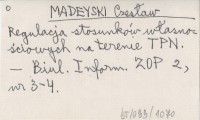 MADEYSKI Czesław
Regulacja stosunków własno-
ściowych na terenie TPN.
— Biul. Inform. ZOP 2,
nr 3-4.